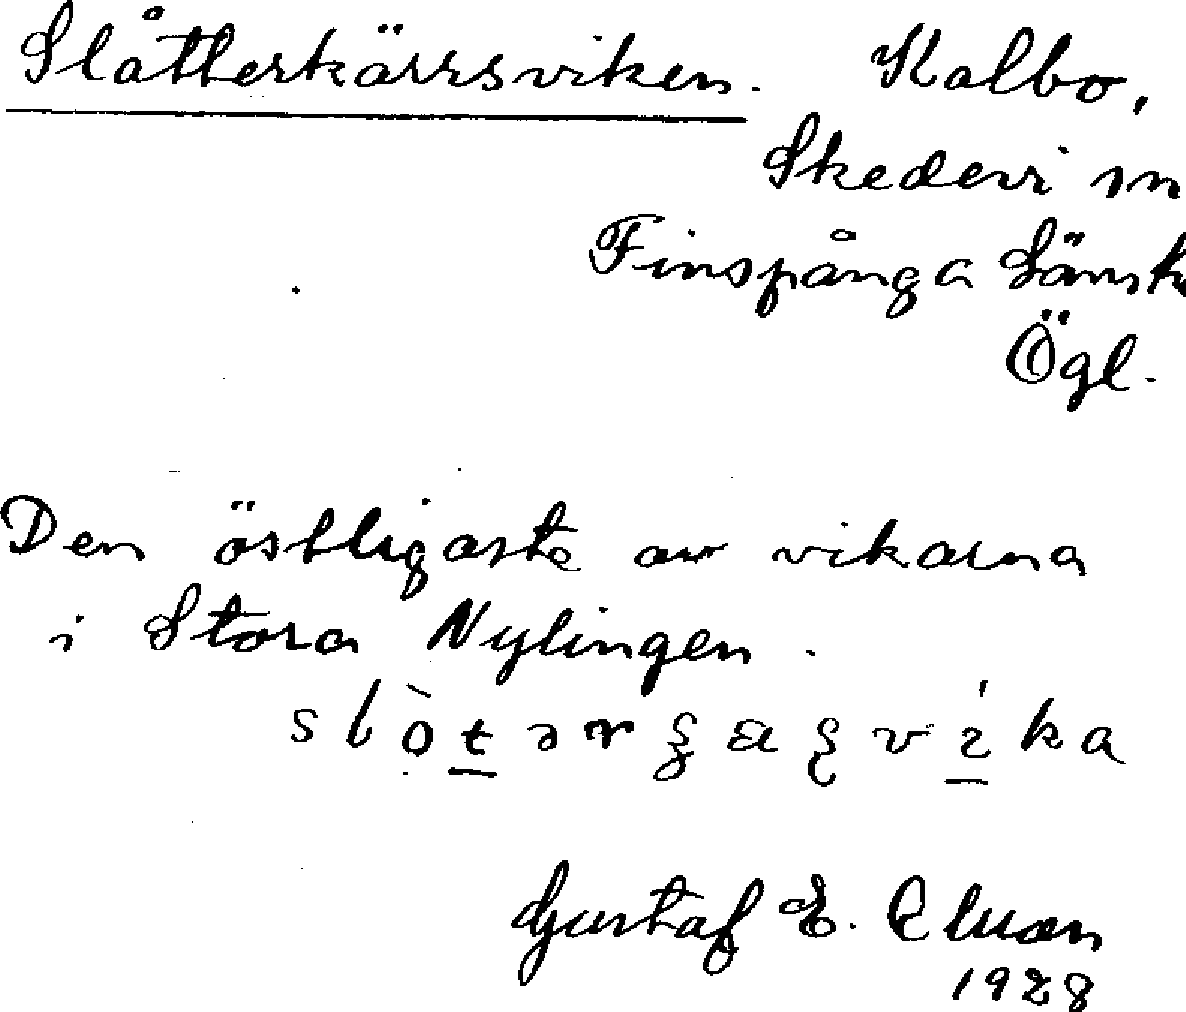 Slåtterkärrsviken. Kalbo,
Skedevi sn
Finspånga Länsh
Ögl.
Den östligaste av vikarna
i Stora Nylingen.
Gustaf E.
1928